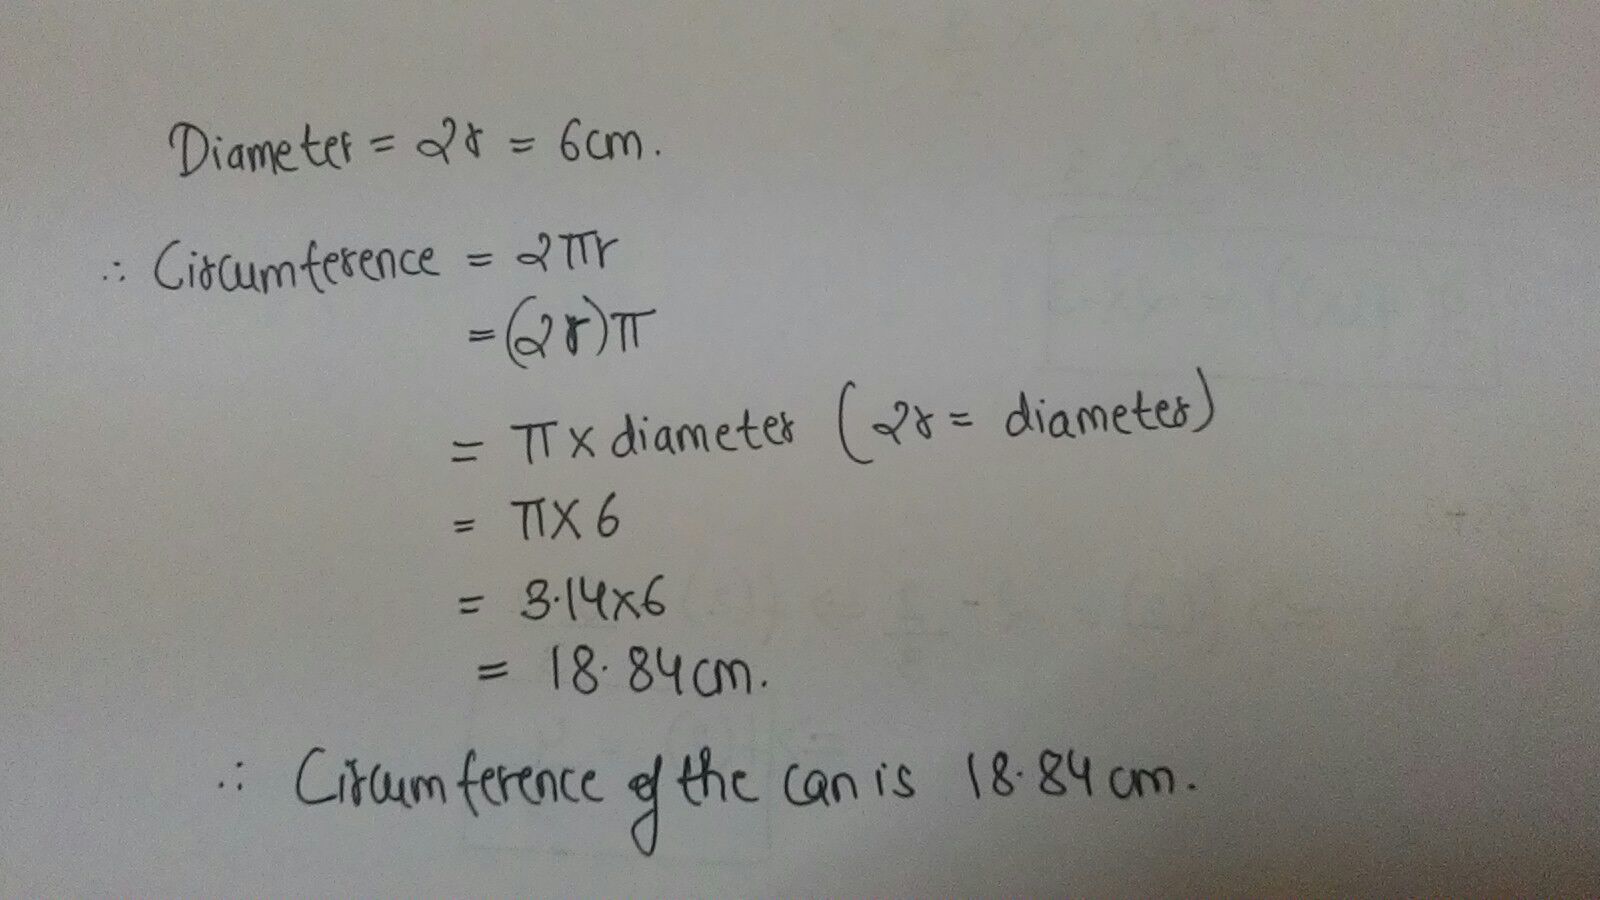 Diameter = 2r = 6cm.
∴ Circumference = 2πr
= (2r)π
= π x diameter (2r = diameter)
= π x 6
= 3.14x6
= 18.84cm.
∴ Circumference of the can is 18.84 cm.